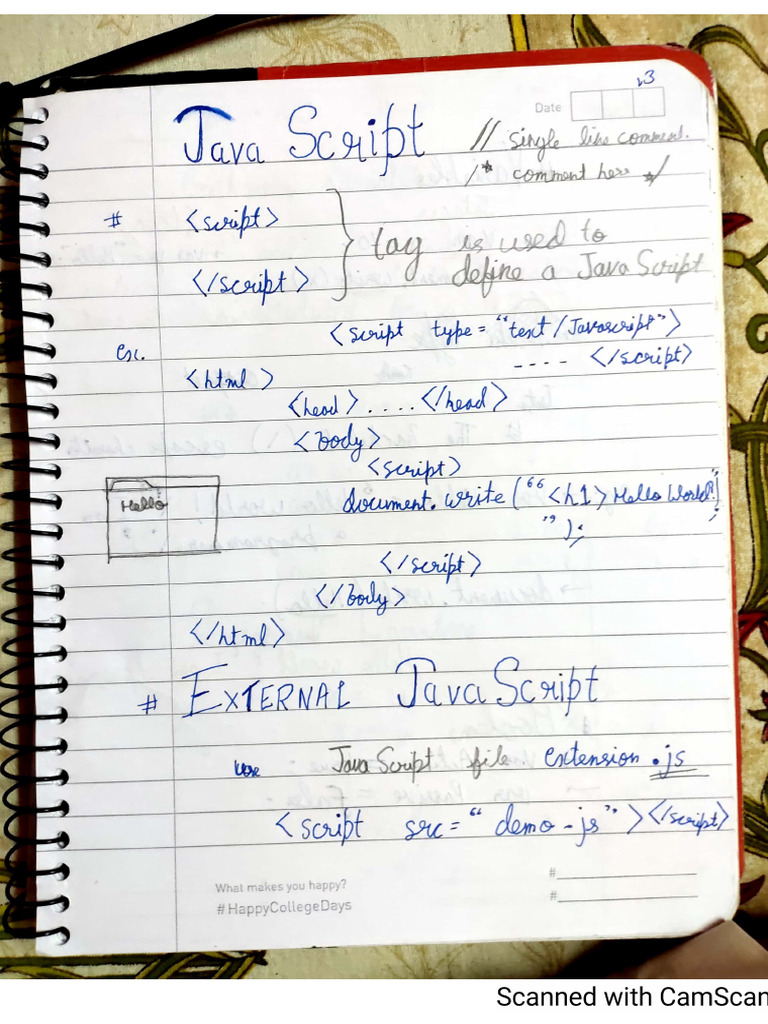 v3
Date
Java Script
// single line comment.
/* comment here */
# <script>
</script>
} tag is used to
define a JavaScript
<script type = "text/Javascript">
.... </script>
ex.
<html>
<head> .... </head>
<body>
<script>
Hello
document.write ("<h1> Hello World!
");
</script>
</body>
</html>
# EXTERNAL JavaScript
use JavaScript file extension .js
<script src = "demo-js"></script>
What makes you happy?
#HappyCollegeDays
#
#
Scanned with CamScan